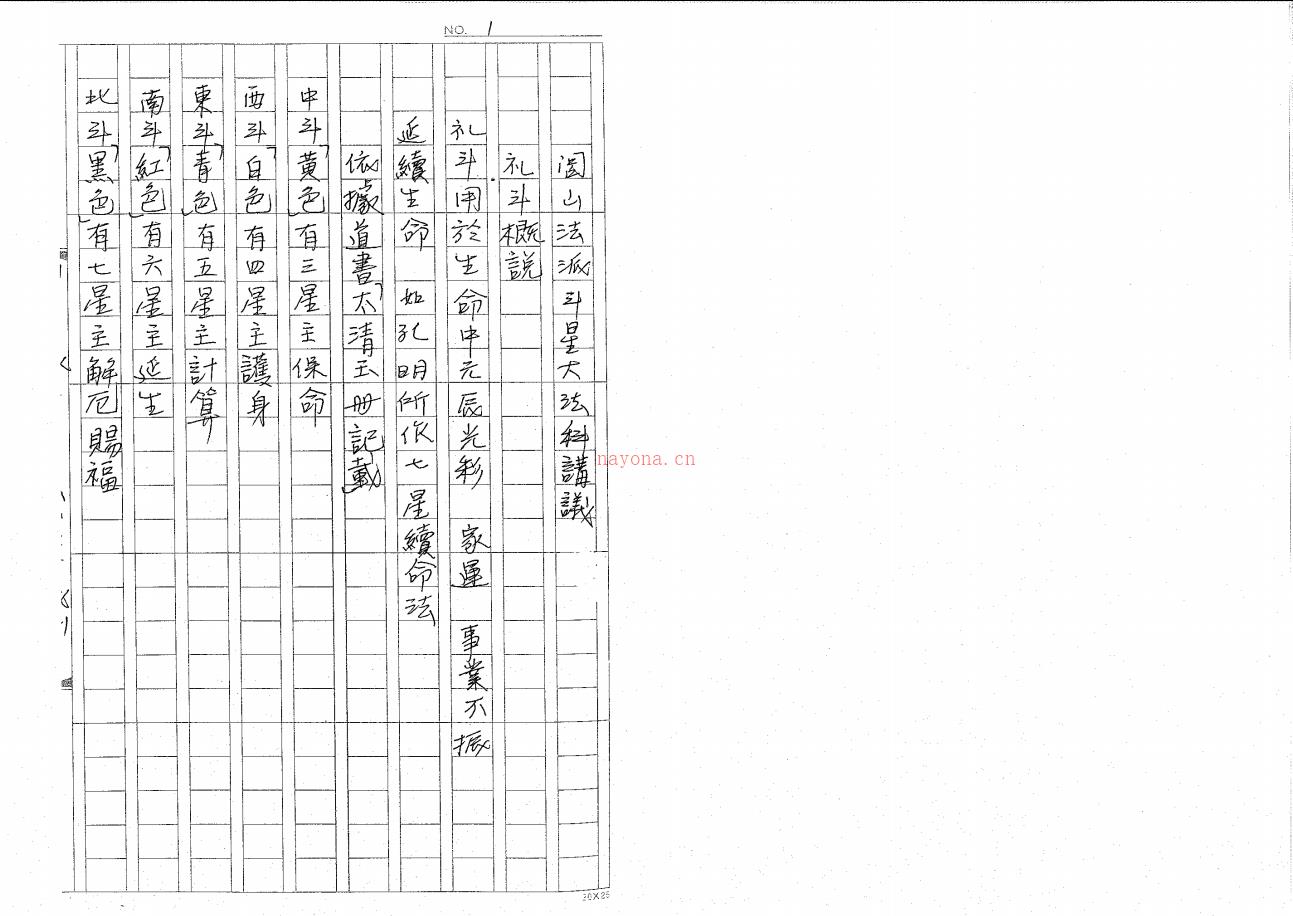 NO. 1
闾山法派斗星大法科講議
礼斗概説
礼斗用於生命中元辰光彩 家運 事業不振
延續生命 如孔明所作七星續命法
依據道書「太清玉册記載」
中斗「黃色」有三星主保命
西斗「白色」有四星主護身
東斗「青色」有五星主計算
南斗「紅色」有六星主延生
北斗「黑色」有七星主解厄賜福
nayona.cn